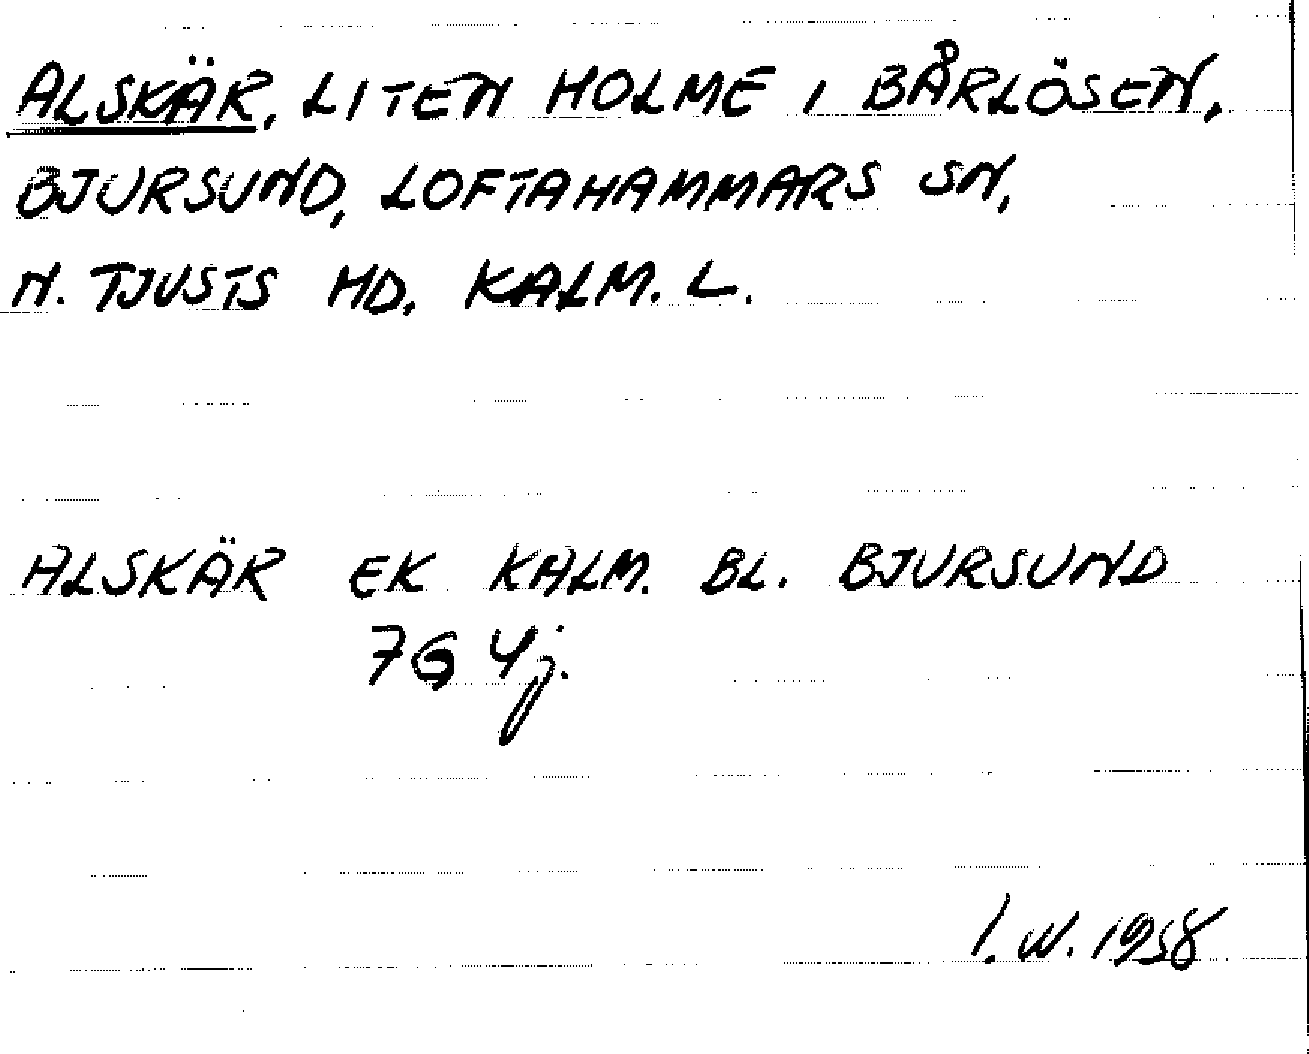 ALSKÄR, LITEN HOLME I BÅRLÖSEN,
BJURSUND, LOFTAHAMMARS SN,
N. TJUSTS HD, KALM. L.
ALSKÄR EK KALM. BL. BJURSUND
7G 4j.
I. W. 1958